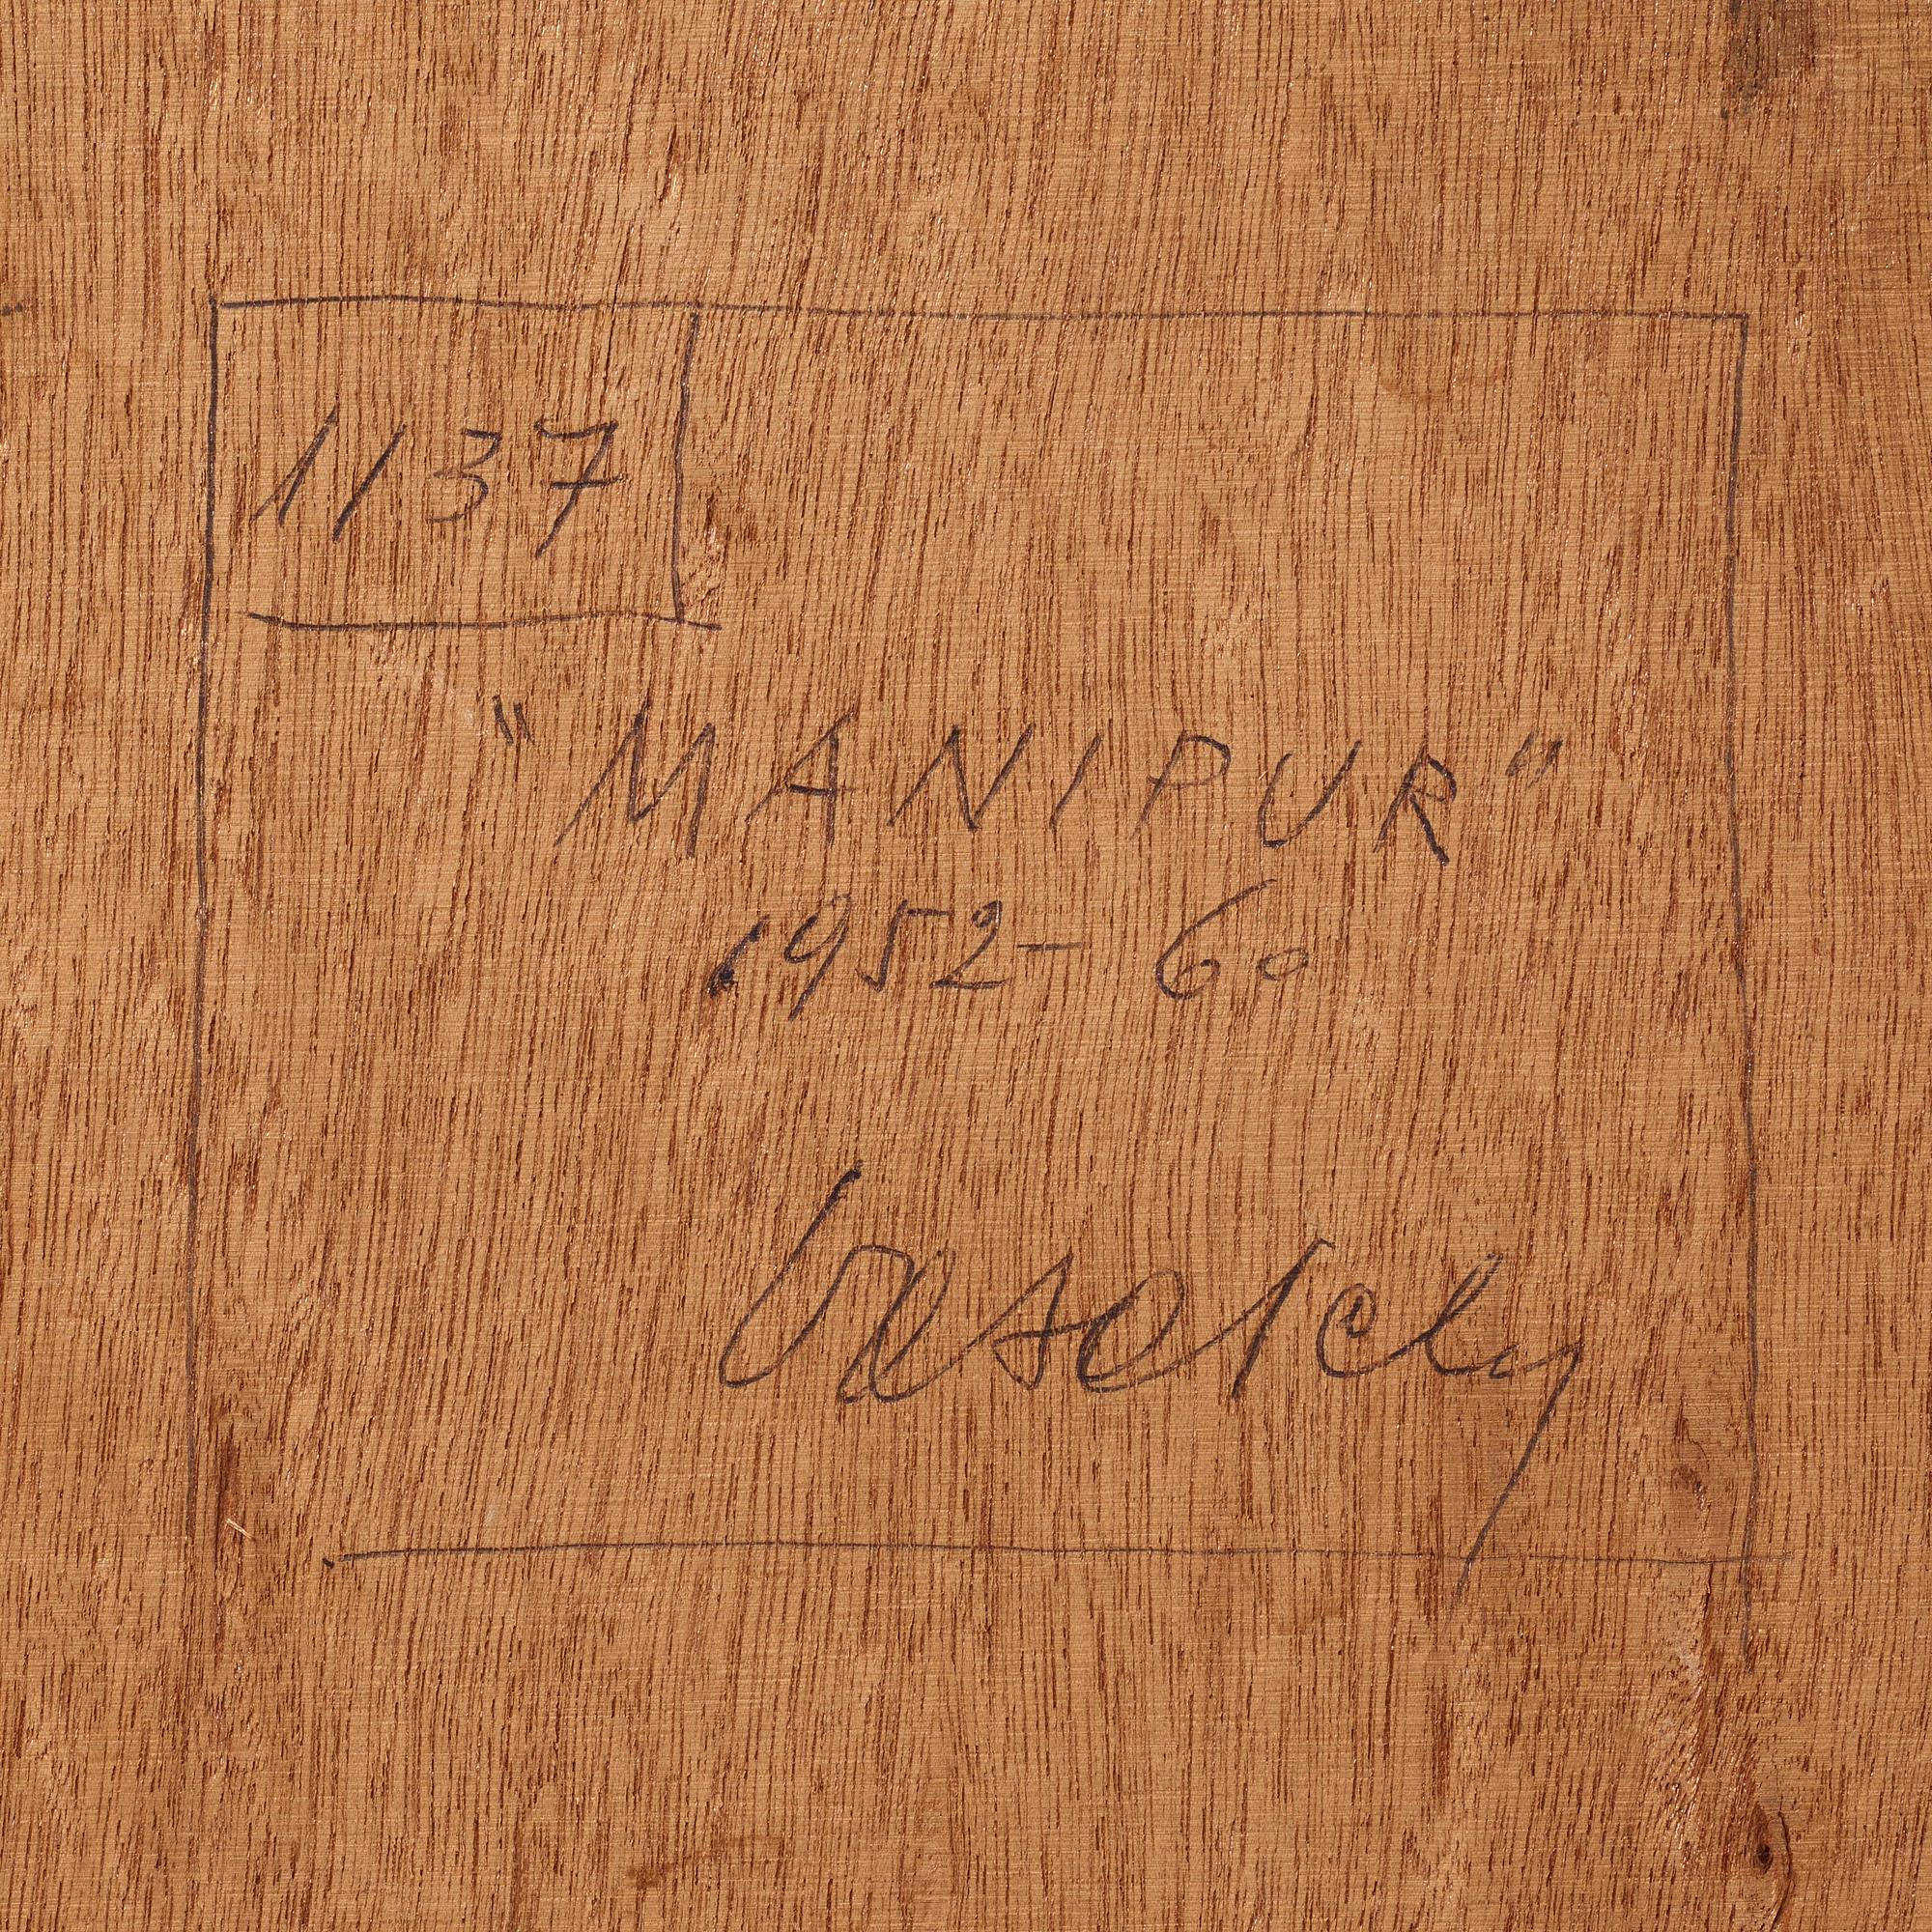 1137
"MANIPUR"
1952-60
Vasarely